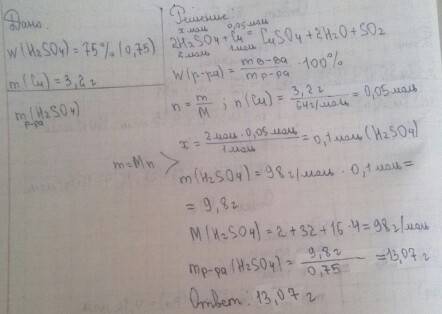 Дано:
W(H₂SO₄) = 75% (0,75)
m(Cu) = 3,2 г
m(H₂SO₄)
р-ра
Решение:
x моль 0,05 моль
2H₂SO₄ + Cu = CuSO₄ + 2H₂O + SO₂
2 моль 1 моль
W(р-ра) = m в-ва / m р-ра · 100%
n = m/M ; n(Cu) = 3,2 г / 64 г/моль = 0,05 моль
x = 2 моль · 0,05 моль / 1 моль = 0,1 моль (H₂SO₄)
m = Mn >
m(H₂SO₄) = 98 г/моль · 0,1 моль =
= 9,8 г
M(H₂SO₄) = 2 + 32 + 16 · 4 = 98 г/моль
m р-ра (H₂SO₄) = 9,8 г / 0,75 = 13,07 г
Ответ: 13,07 г